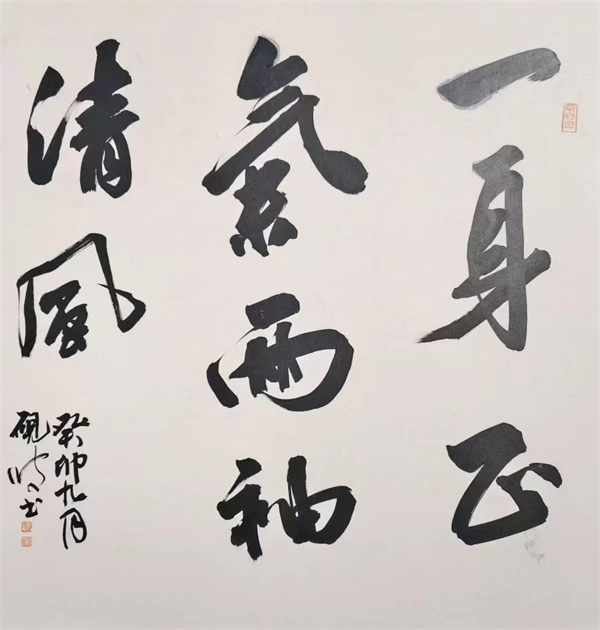 一身正
氣兩袖
清風
癸卯九月
硯 书